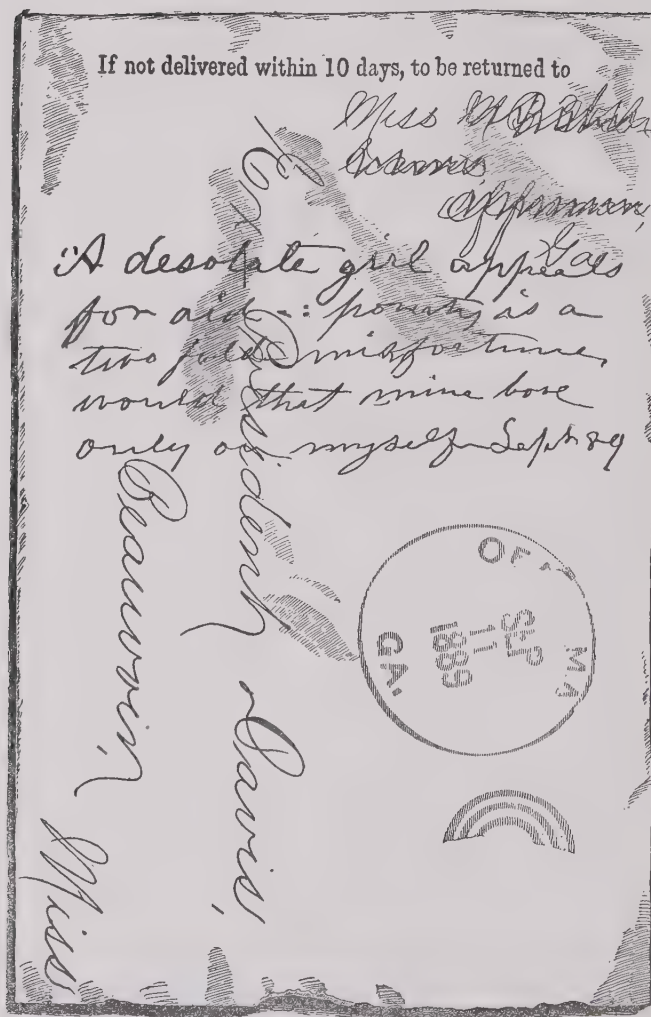 If not delivered within 10 days, to be returned to
Miss
Ga
"A desolate girl appeals
for aid -: poverty is a
two fold misfortune,
would that mine bore
only on myself - Sept 89
Ex President Davis,
Beauvoir,
Miss
OF
M.A
SEP
11
1889
GA.